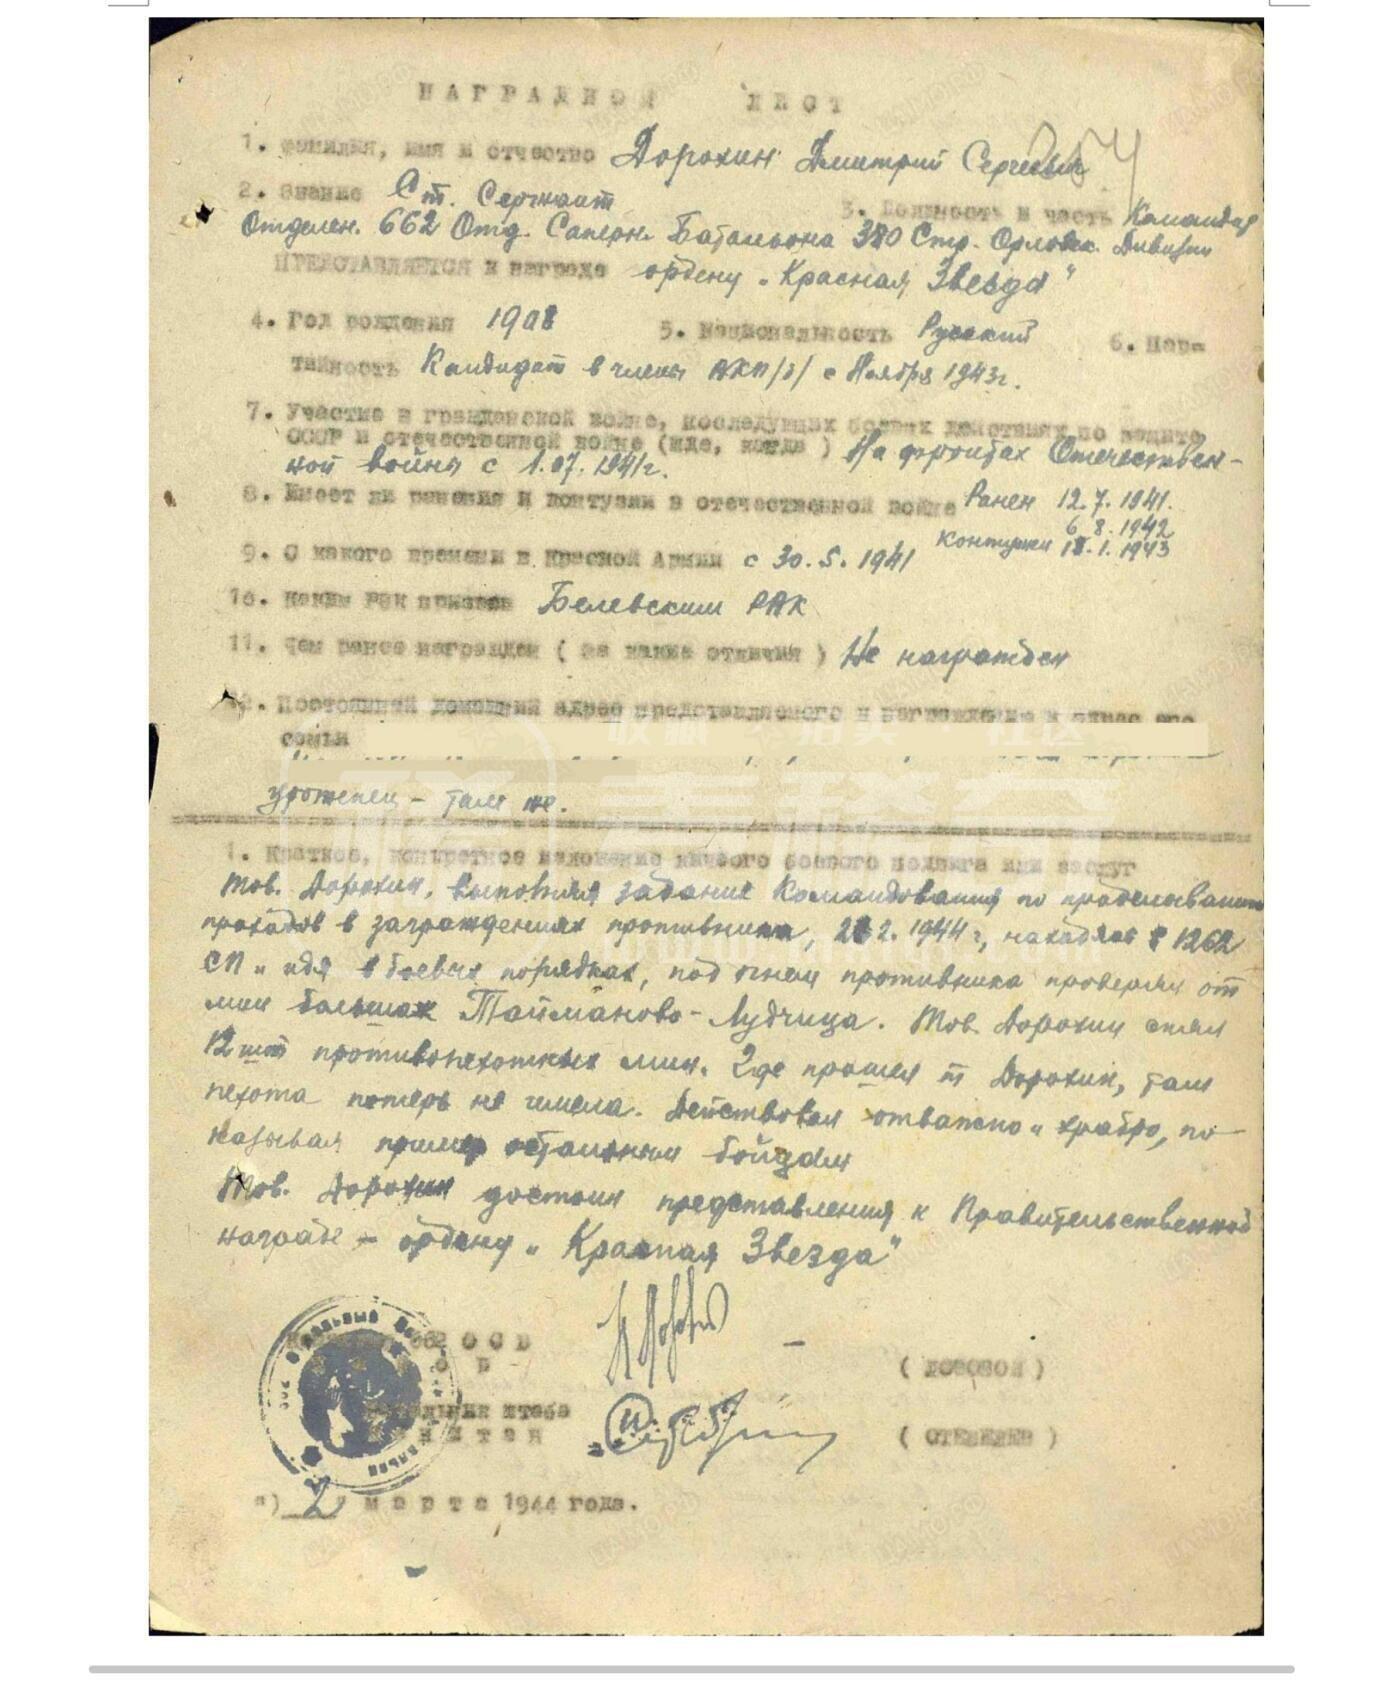 НАГРАДНОЙ ЛИСТ
1. Фамилия, имя и отчество Дорохин Дмитрий Сергеевич
2. Звание Ст. Сержант 3. Должность и часть Командир
Отделен. 662 Отд. Саперн. Батальона 380 Стр. Орловск. Дивизии
ПРЕДСТАВЛЯЕТСЯ к награде ордену „Красная Звезда"
4. Год рождения 1908 5. Национальность Русский 6. Пар-
тийность Кандидат в члены ВКП/б/ с Ноября 1943г.
7. Участие в гражданской войне, последующих боевых действиях по защите
СССР и отечественной войне (где, когда) На фронтах Отечествен-
ной войны с 1.07.1941г.
8. Имеет ли ранения и контузии в отечественной войне Ранен 12.7.1941.
6.8.1942
9. С какого времени в Красной Армии с 30.5.1941 контужен 18.1.1943
10. Каким РВК призван Белевским РВК
11. Чем ранее награжден (за какие отличия) Не награжден
12. Постоянный домашний адрес представляемого к награждению и адрес его
семьи
уроженец – там же.
1. Краткое, конкретное изложение личного боевого подвига или заслуг
Тов. Дорохин, выполняя задания Командования по проделыванию
проходов в заграждениях противника, 2.1944г, находясь в 1262
СП и идя в боевых порядках, под огнем противника проверял от
мин большак Тайманово-Лудчица. Тов. Дорохин снял
12 шт противопехотных мин. Где прошел т Дорохин, там
пехота потерь не имела. Действовал отважно и храбро, по-
казывая пример остальным бойцам
Тов. Дорохин достоин представления к Правительственной
награде – ордену „Красная Звезда"
662 ОСБ
(ЛОЗОВОЙ)
Начальник штаба
Капитан
„2" марта 1944 года.